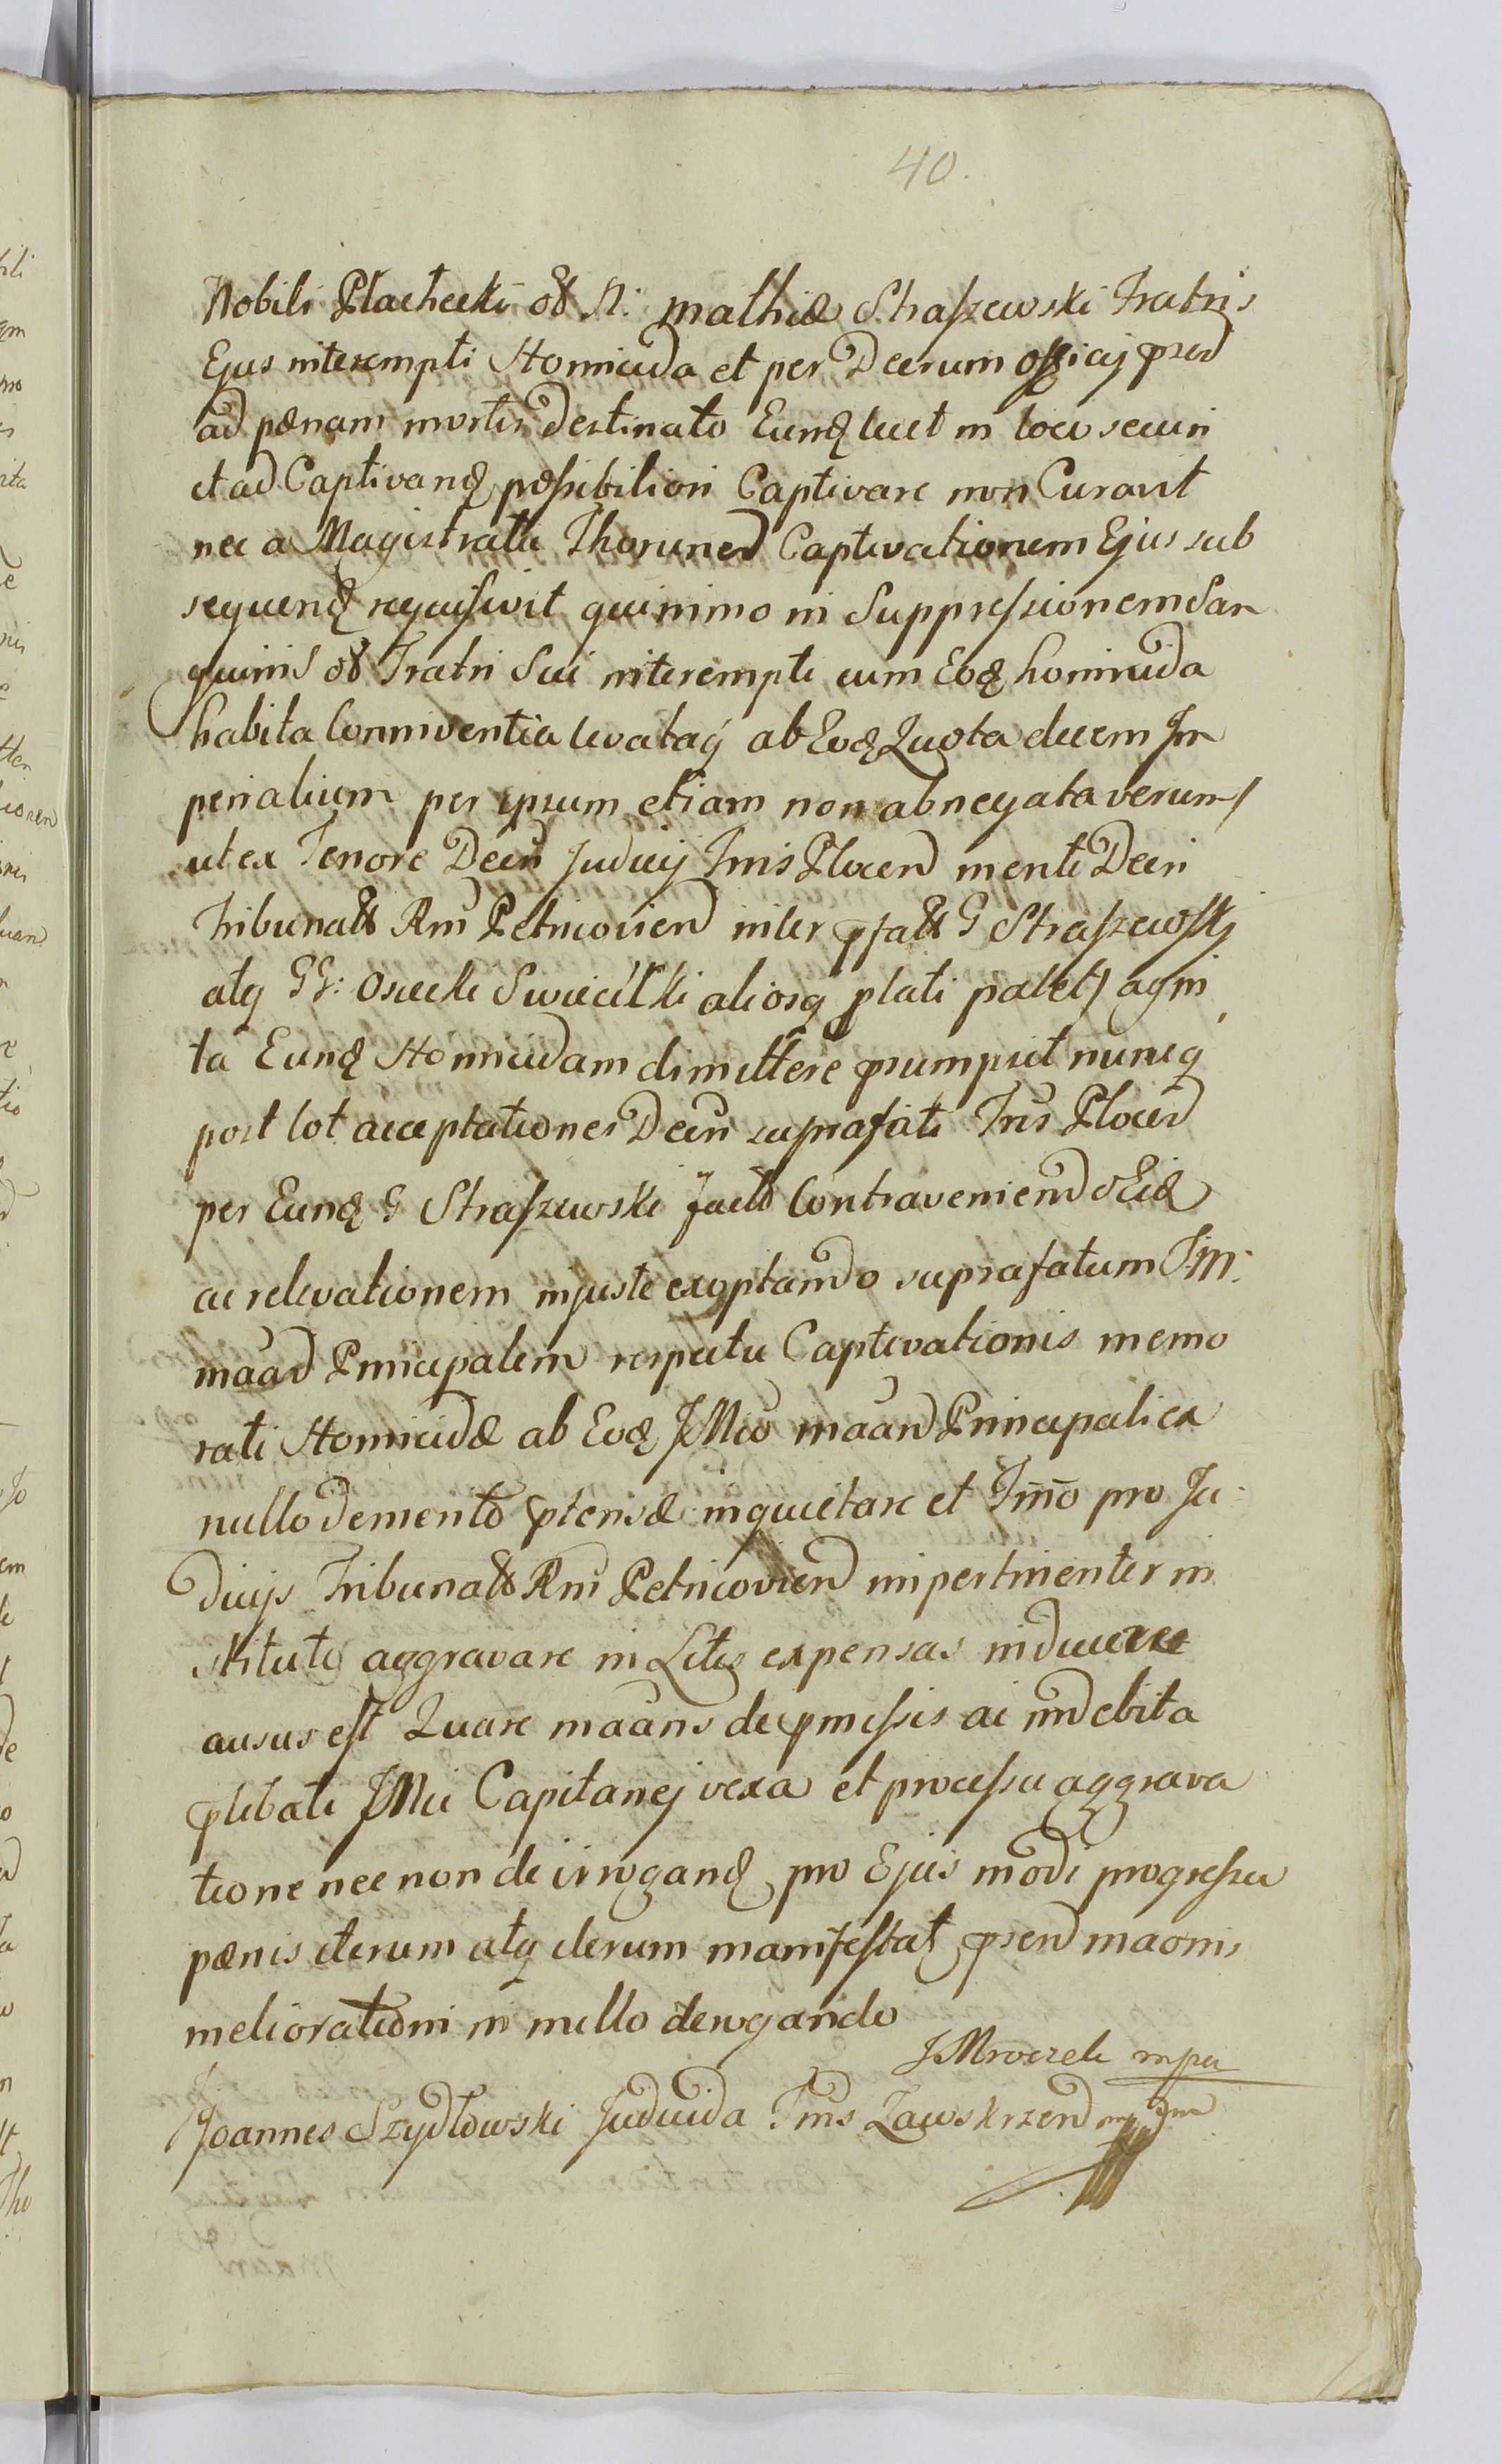 40.
Nobili Płachecki ob N: Mathiæ Straszewski Fratris
Ejus interempti Homicida et per Decrum Officij præd
ad pænam mortis destinato Eundq licet in loco securi
et ad Captivandq possibiliori Captivare non Curavit
nec a Magistratu Thorunen Captivationem Ejus sub
sequendq requisivit quinimo in Suppressionem San
guinis ob Fratri Sui interempti cum Eodq homicida
habita Conniventia levataq ab Eodq Quota decem Im
perialium per ipsum etiam non abnegata verum /
ut ex Tenore Decri Judicij Tris Plocen mente Decri
Tribunalis Rni Petricovien inter præfatt G Straszewskj
atq GG: Osiecki Swiecicki aliosq plati patet / agni
ta Eundq Homicidam dimittere præsumpsit nuncq
post tot acceptationes Decri suprafati Tris Plocen
per Eundq G Straszewski fact Contraveniend Eidq
ac relevationem injuste exoptando suprafatum IM:
maand Principalem respectu Captivationis memo
rati Homicidæ ab Eodq JMco maand Principali ex
nullo demerito prætensæ inquietare et Tmno pro Ju
dicijs Tribunalis Rni Petricovien impertinenter in
stituto aggravare in Litis expensas inducere
ausus est Quare maans de præmissis ac indebita
prælibati JMci Capitanej vexa et processu aggrava
tione nec non de irrogandq pro Ejus modi progressu
pænis iterum atq iterum manifestat præsen maonis
meliorationi in nullo derogando
JMroczek mpu
Joannes Szydłowski Judicida Tris Zawskrzen mp